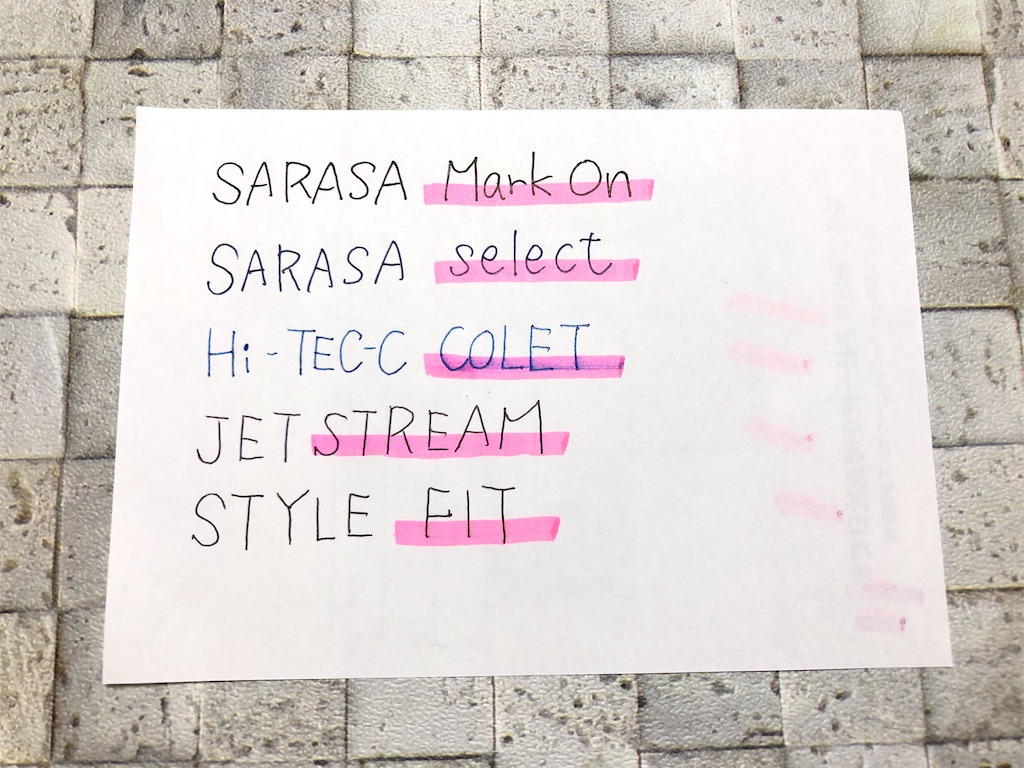 SARASA Mark On
SARASA select
Hi-TEC-C COLET
JETSTREAM
STYLE FIT